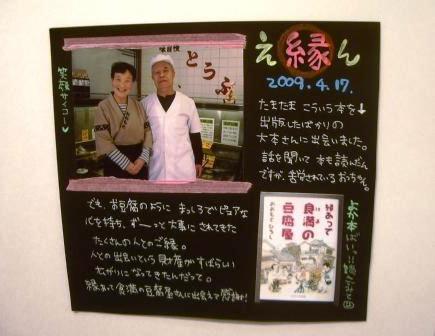 え縁ん
2009.4.17.
笑顔サイコー♥
味自慢
とうふ
たまたま こういう本を↓
出版したばかりの
大本さんに出会いました。
話を聞いて 本も読んだん
ですが、苦労されているおうち。
でも、お豆腐のように まっしろでピュアな
心を持ち、ずーっと大事にされてきた
たくさんの人とのご縁。
人との出会いという財産がすばらしい
広がりになってきたんだって。
縁あって食満の豆腐屋さんに出会えて感謝!
縁あって
食満の
豆腐屋
おおもと ひろし
よか本ばい!!